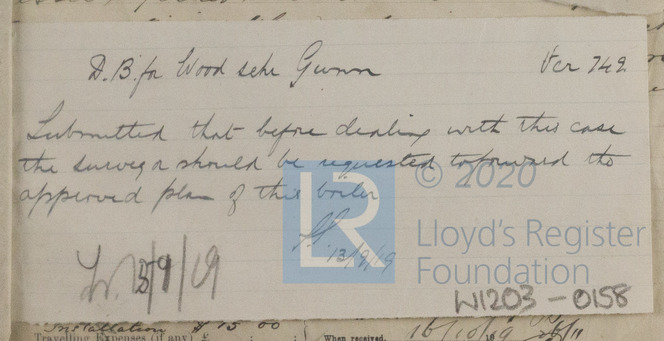 D.B. for Wood schr Gunn Ver 749
Submitted that before dealing with this case
the surveyor should be requested to forward the
approved plan of this boiler
13/9/19
W. 15/9/19
LR
© 2020
Lloyd's Register
Foundation
W1203-0158
Installation £ 15 00
Travelling Expenses (if any) £
When received, 16/10/19